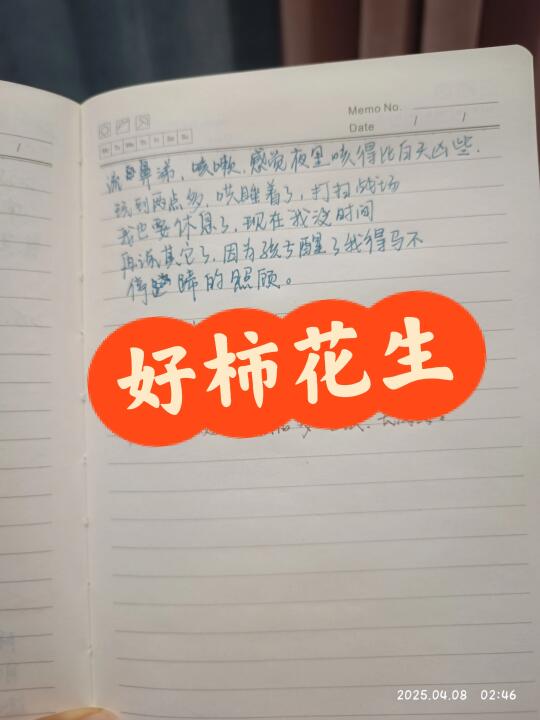 Memo No.
Date / /
Mo Tu We Th Fr Sa Su
流鼻涕，咳嗽，感觉夜里咳得比白天凶些.
玩到两点多，哄睡着了，打扫战场
我也要休息了，现在我没时间
再谈其它了，因为孩子醒了我得马不
停蹄的照顾。
好柿花生
2025.04.08 02:46